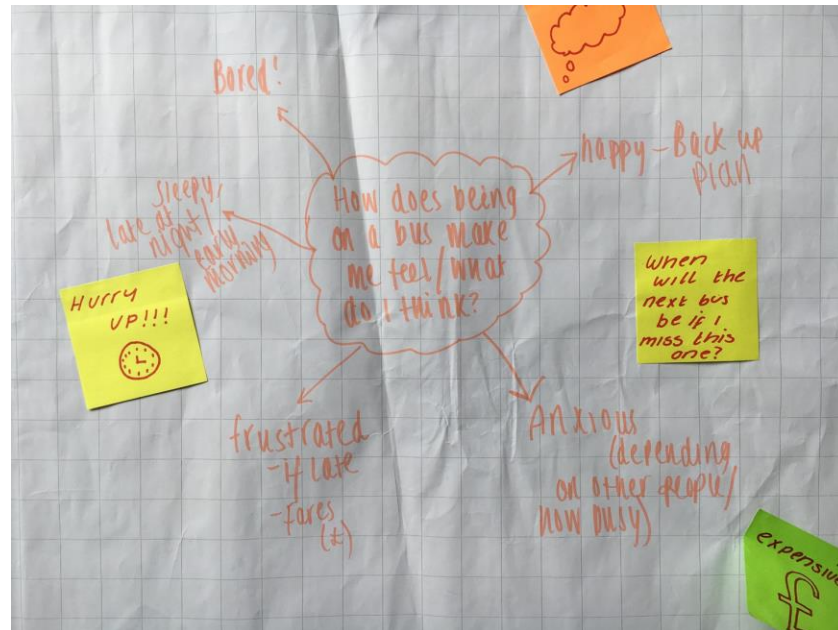 Bored!
happy - Back up
plan
sleepy,
late at
night/
early
morning
How does being
on a bus make
me feel/what
do I think?
Hurry
UP!!!
When
will the
next bus
be if I
miss this
one?
frustrated
- If late
- Fares
(£)
Anxious
(depending
on other people/
how busy)
expensive
£